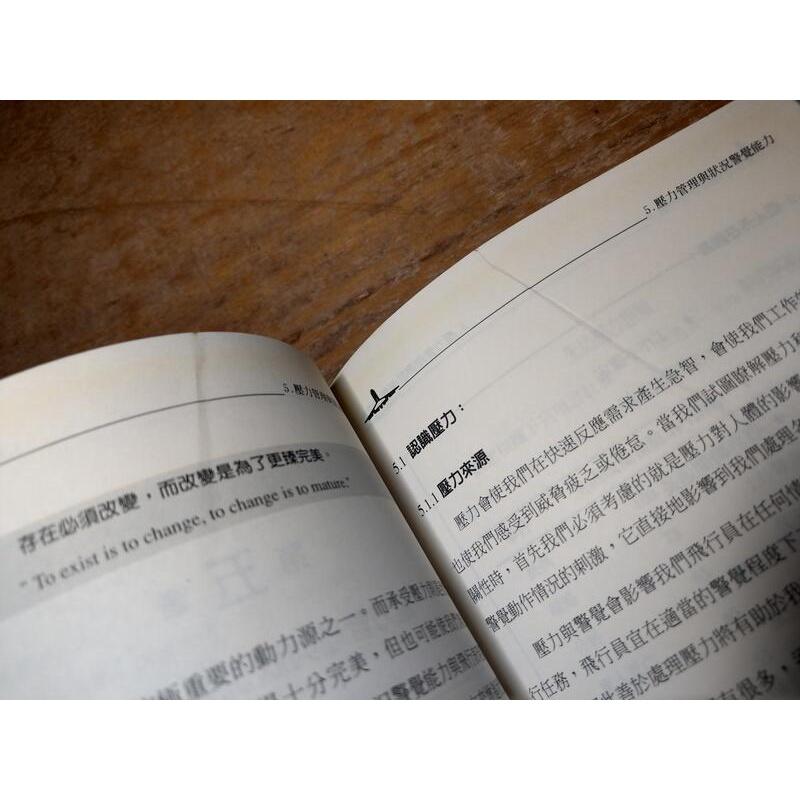 5.壓力管理與
存在必須改變，而改變是為了更臻完美。
" To exist is to change, to change is to mature."
極重要的動力源之一。而承受壓力與
十分完美，但也可能使我們
警覺能力與飛行
5.壓力管理與狀況警覺能力
5.1 認識壓力：
5.1.1 壓力來源
壓力會使我們在快速反應需求產生急智，會使我們工作
也使我們感受到威脅疲乏或倦怠。當我們試圖瞭解壓力和
關性時，首先我們必須考慮的就是壓力對人體的影響
警覺動作情況的刺激，它直接地影響到我們處理
壓力與警覺會影響我們飛行員在任何情
行任務，飛行員宜在適當的警覺程度下
此善於處理壓力將有助於我
有很多，